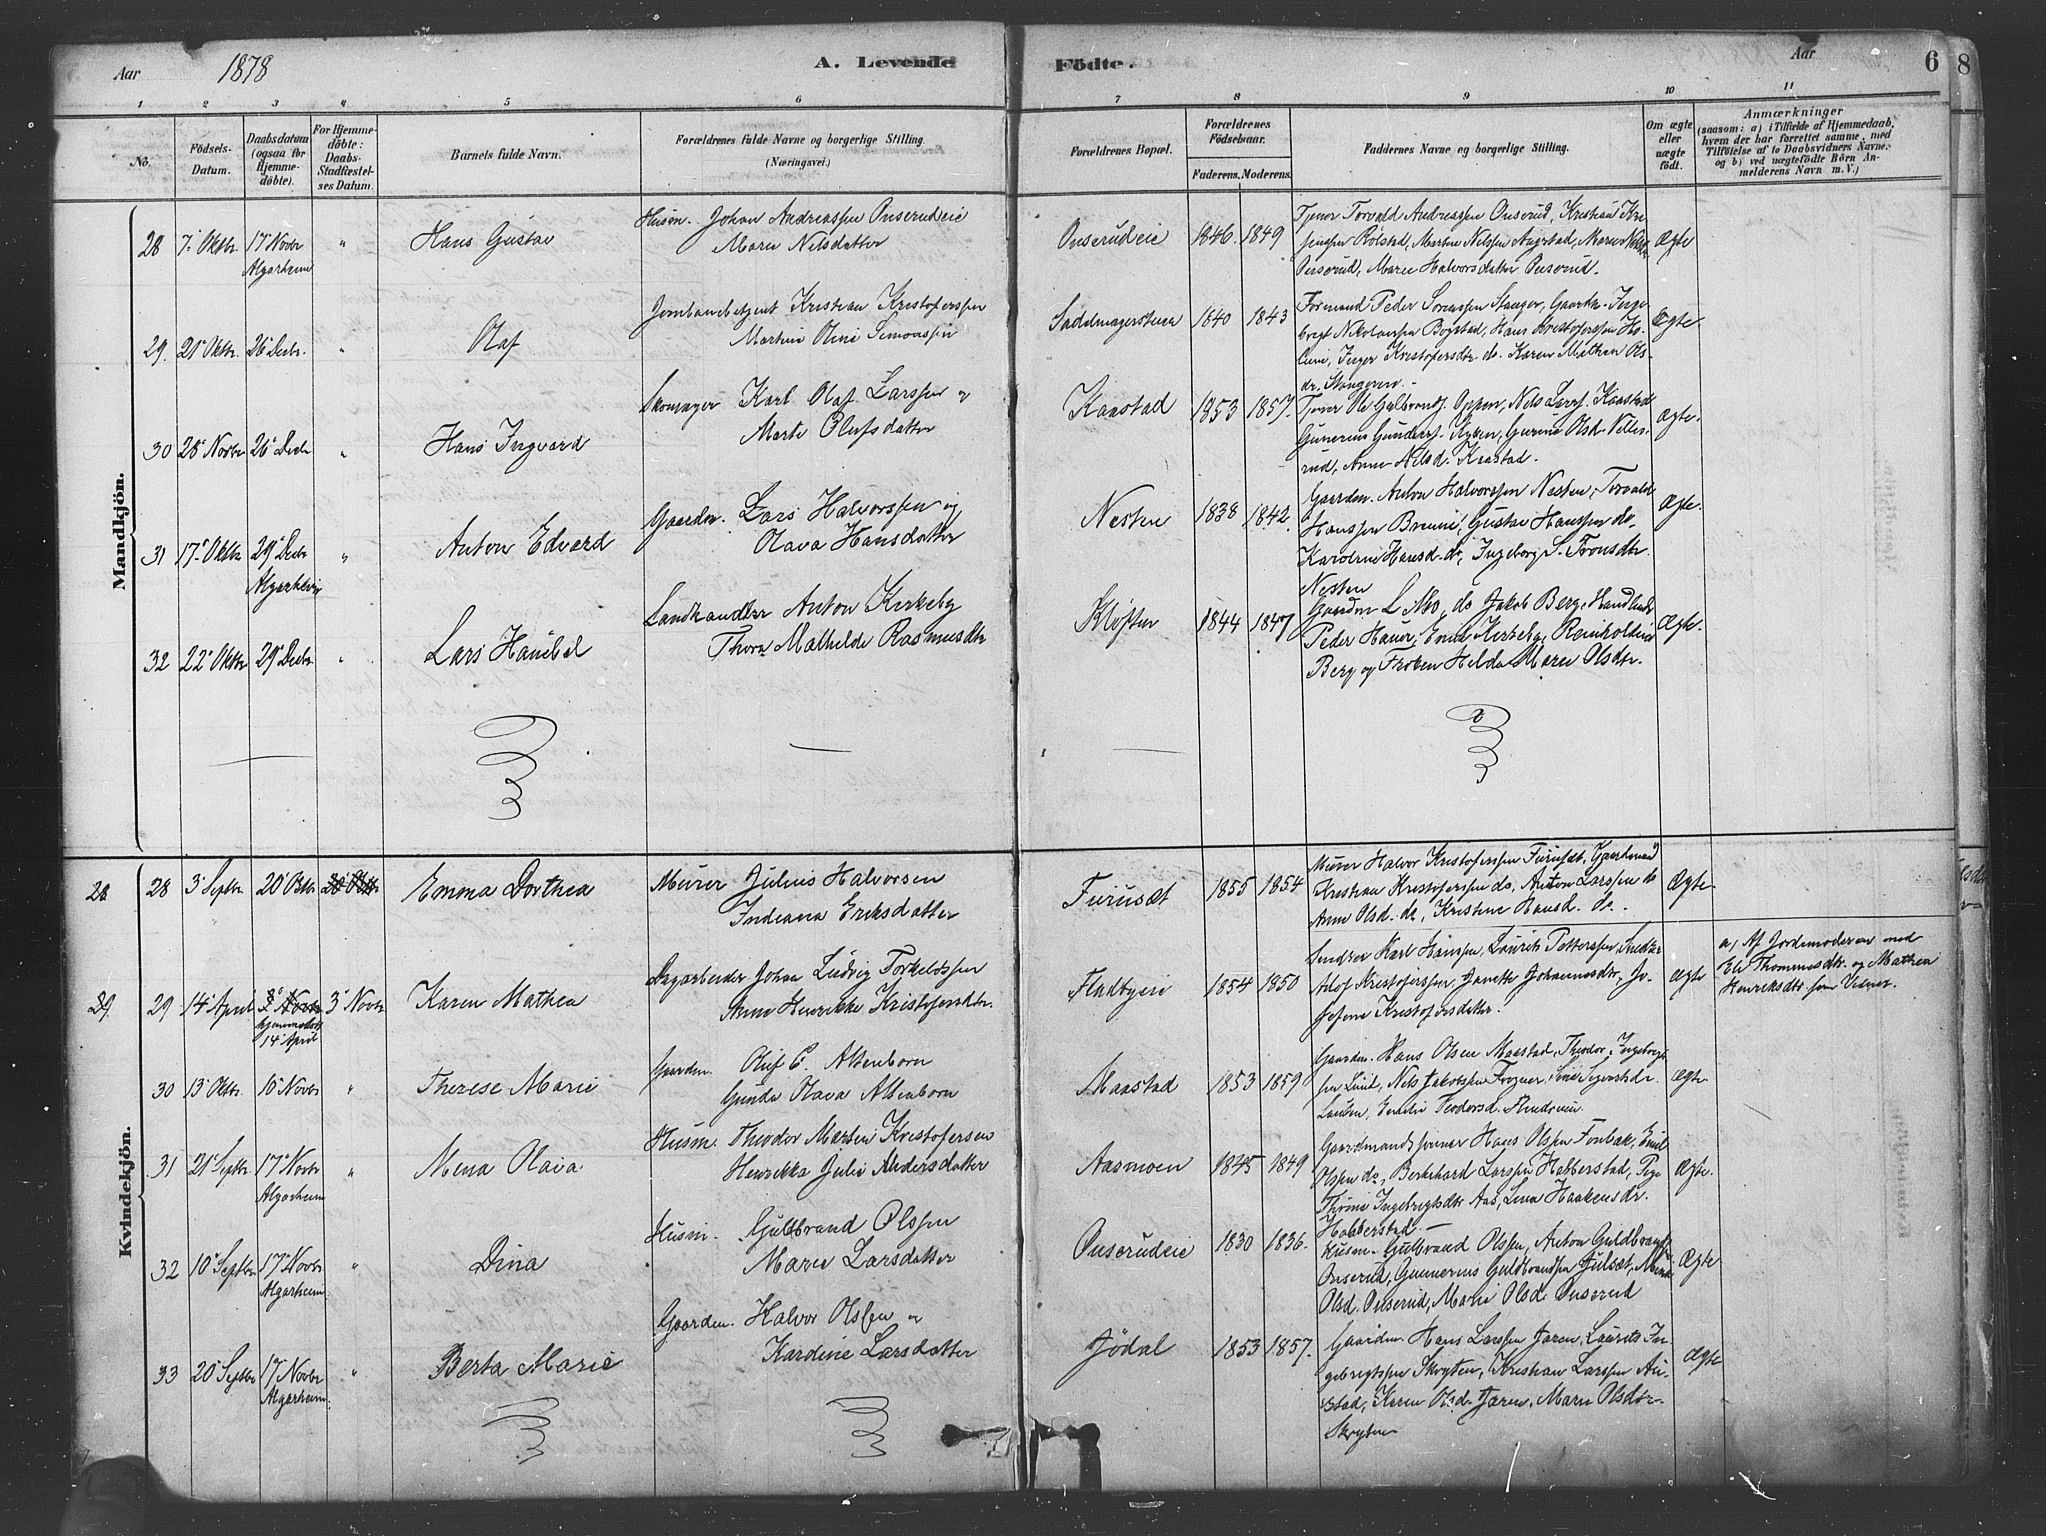 Aar 1878 A. Levende Födte. Aar 6
8
1 2 3 4 5 6 7 8 9 10 11
No. Födsels-Datum. Daabsdatum (ogsaa for Hjemme-döbte). For Hjemme-döbte: Daabs-Stadfæstel-ses Datum. Barnets fulde Navn. Forældrenes fulde Navne og borgerlige Stilling. (Næringsvei.) Forældrenes Bopæl. Forældrenes Födselsaar. Faderens. Moderens. Faddernes Navne og borgerlige Stilling. Om ægte eller uægte födt. Anmærkninger (saasom: a) i Tilfælde af Hjemmedaab, hvem der har forrettet samme, med Tilföielse af to Daabsvidners Navne. og b) ved uægtefödte Börn An-melderens Navn m. V.)
Mandkjön.
28 7. Oktbr 17 Novbr Algarheim " Hans Gustav
Husm. Johan Andreassen Onserudeie
Maren Nilsdatter
Onserudeie 1846. 1849
Tjener Torvald Andreassen Onserud, Kristian
Rolstad, Martin Nilssen Augstad, Maren
Onserud, Maren Halvorsdatter Onserud.
Ægte
29. 21 Oktbr. 26 Decbr. " Olaf
Jernbanebetjent Kristian Kristofersen
Martine Oline Simonsen
1840 1843
Formand Peder Sorenssen Stanger, Gaardm. Inge-
brigt Nikolaissen Bogstad, Hans Kristofersen
Inger Kristofersdtr. do. Karen Mathea Ols-
dr. Stangeren. -
Ægte.
30 28 Novbr 26 Decbr " Hans Ingvard
Skomager Karl Olaf Larssen og
Marte Olufsdatter
Kaastad 1853 1857.
Tjener Ole Gulbrands. Oppen, Nils Larss. Kaastad
Gunerius Gunderss. Nyben, Gurine Olsd. Nilles-
rud, Anne Nilsd. Kaastad.
Ægte.
31 17. Oktbr 29 Decbr Algarheim " Anton Edvard
Gaardm. Lars Halvorssen og
Olava Hansdatter
Nesten 1838 1842.
Gaardm. Anton Halvorssen Nesten, Torvald
Hanssen Brunni, Gustav Hanssen do.
Karoline Hansd. do, Ingeborg S. Tronsdtr.
Nesten
Ægte.
32 22 Oktbr 29 Decbr " Lars Hanibal
Landhandler Anton Kirkeby
Thora Mathilde Rasmusdtr
Kløften 1844 1847
Gaardm L. Moe, do Jakob Berg, Handlende
Peder Hauer, Emma Kirkeby, Reinholdine
Berg og Frøken Helda Maren Olsdtr.
Ægte.
Kvindekjön.
28 28 3 Septbr 20 Oktbr Emma Dorthea
Murer Julius Halvorsen
Indiana Eriksdatter
Furusæt 1855 1854
Murer Halvor Kristofersen Furusæt, Gaardmand
Kristian Kristofersen do, Anton Larssen do
Anne Olsd. do, Kristine Hansd. do. -
Ægte.
29. 29 14 April 3 Novbr hjemmedøbt 14 April 3 Novbr Karen Mathea
Dagarbeider Johan Ludvig Torkelssen
Anne Henrikke Kristofersdtr.
Fladbyeie 1854 1850
Karl Hanssen, Laurits Petterssen, Snedker
Adof Kristofersen, Janette Johannesdtr, Jo-
sefine Kristofersdatter.
ægte
a, Af Jordemoderen med
Eli Thommesdtr. og Mathea
Henriksdtr som Vidner.
30 13 Oktbr 10 Novbr " Therese Marie
Gaardm. Oluf C. Altenborn
Gunda Olava Altenborn
Maastad 1853 1859
Gaardm. Hans Olsen Maastad, Theodor Ingebregt-
sen Lund, Nils Jakobssen Frogner,
Emilie Teodorsd.
Ægte
31 21 Septbr 17 Novbr Algarheim " Mena Olava
Husm. Theodor Martin Kristofersen
Henrikka Julie Andersdatter
Aasmoen 1845 1849
Gaardmandssønner Hans Olssen Fonbæk, Emil
Olssen do, Bernhard Larssen Habberstad, Pige
Ingebrigtsdtr Aas, Lina Haakensdr.
Habberstad. -
Ægte.
32 10 Septbr 17 Novbr Algarheim " Dina
Husm. Gulbrand Olssen
Maren Larsdatter
Onserudeie 1830 1836.
Husm. Gulbrand Olssen, Anton Guldbrandsen
Onserud, Gunnerius Guldbrandsen Julsæt,
Olsd. Onserud, Marie Olsd. Onserud
Ægte
33 20 Septbr 17 Novbr Algarheim. " Berta Marie
Gaardm. Halvor Olsen og
Karoline Larsdatter
Jödal 1853 1857.
Gaardm. Hans Larssen Jaren, Laurits In-
gebrigtssen Skryten, Kristian Larssen Au-
stad, Karen Olsd. Jaren, Maren Olsdtr
Skryten
Ægte